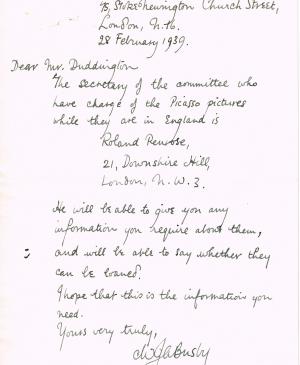 75, Stoke Newington Church Street,
London, N.16.
28 February 1939.
Dear Mr. Duddington
The secretary of the committee who
have charge of the Picasso pictures
while they are in England is
Roland Penrose,
21, Downshire Hill,
London, N.W.3.
He will be able to give you any
information you require about them,
and will be able to say whether they
can be loaned.
I hope that this is the information you
need.
Yours very truly,
Busby